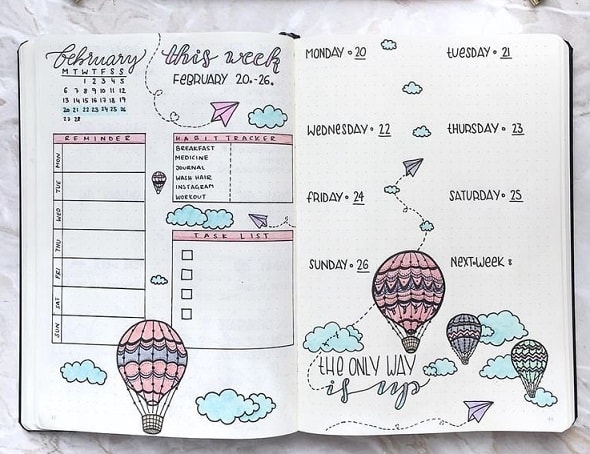 february
M T W T F S S
1 2 3 4 5
6 7 8 9 10 11 12
13 14 15 16 17 18 19
20 21 22 23 24 25 26
27 28
this week
FEBRUARY 20.-26.
REMINDER
MON
TUE
WED
THU
FRI
SAT
SUN
HABIT TRACKER
BREAKFAST
MEDICINE
JOURNAL
WASH HAIR
INSTAGRAM
WORKOUT
TASK LIST
MONDAY 20
TUESDAY 21
WEDNESDAY 22
THURSDAY 23
FRIDAY 24
SATURDAY 25
SUNDAY 26
NEXT WEEK:
THE ONLY WAY
is up